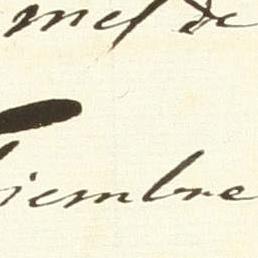 mes de
iembre